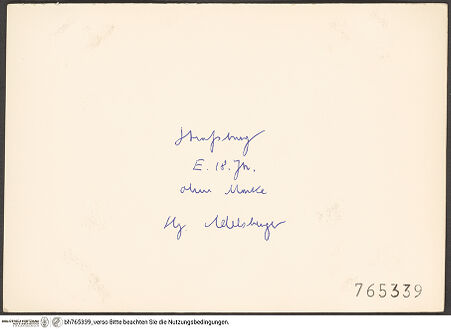 Straßburg
E. 18. Jh.
ohne Marke
765339
bh765339,verso Bitte beachten Sie die Nutzungsbedingungen.